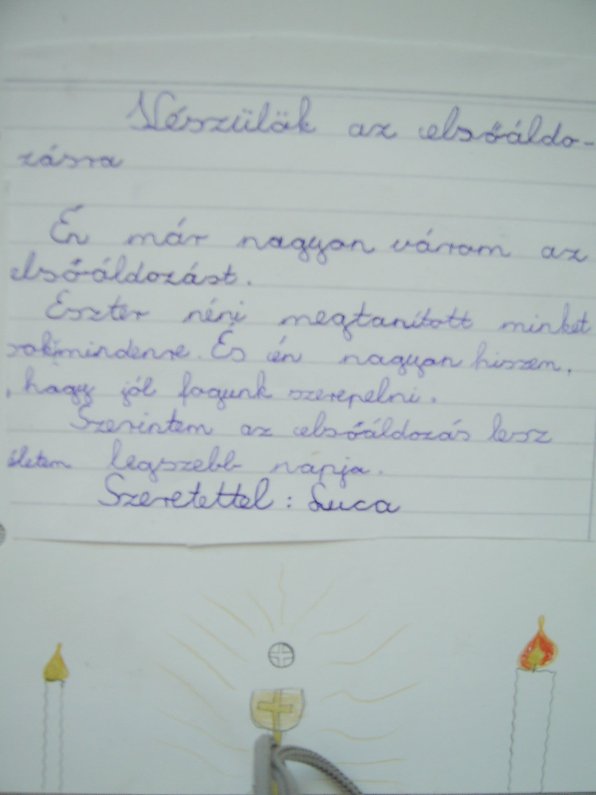 Készülök az elsőáldo-
zásra
Én már nagyon várom az
elsőáldozást.
Eszter néni megtanított minket
sokmindenre. És én nagyon hiszem,
, hogy jól fogunk szerepelni.
Szerintem az elsőáldozás lesz
életem legszebb napja.
Szeretettel: Luca